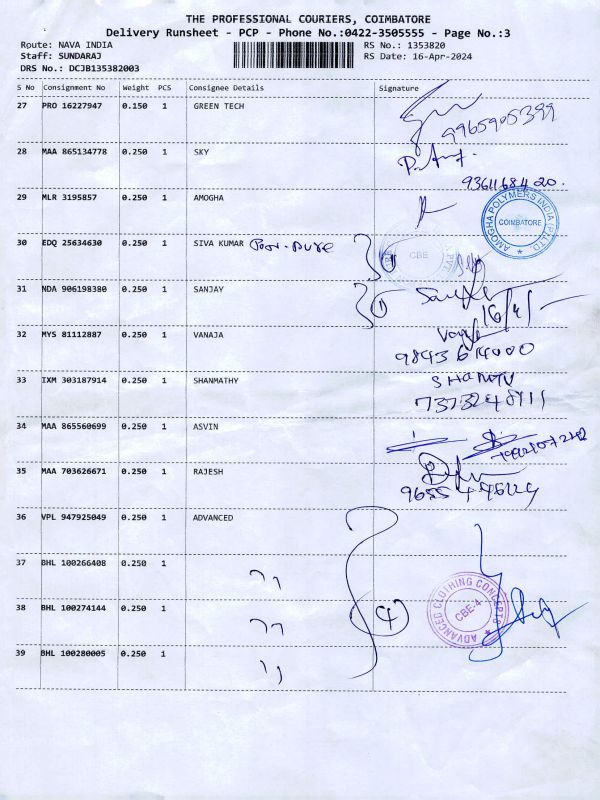 THE PROFESSIONAL COURIERS, COIMBATORE
Delivery Runsheet - PCP - Phone No.:0422-3505555 - Page No.:3
Route: NAVA INDIA RS No.: 1353820
Staff: SUNDARAJ RS Date: 16-Apr-2024
DRS No.: DCJB135382003
S No Consignment No Weight PCS Consignee Details Signature
27 PRO 16227947 0.150 1 GREEN TECH
9965905399
28 MAA 865134778 0.250 1 SKY
9361168420.
29 MLR 3195857 0.250 1 AMOGHA
AMOGHA POLYMERS INDIA (P) LTD
COIMBATORE
30 EDQ 25634630 0.250 1 SIVA KUMAR
CBE
31 NDA 906198380 0.250 1 SANJAY 1
16/4/
32 MYS 81112887 0.250 1 VANAJA
9843614000
33 IXM 303187914 0.250 1 SHANMATHY
7373248711
34 MAA 865560699 0.250 1 ASVIN
35 MAA 703626671 0.250 1 RAJESH
36 VPL 947925049 0.250 1 ADVANCED
37 BHL 100266408 0.250 1 ,,
38 BHL 100274144 0.250 1 ,, 4
ADVANCED CLOTHING CONCEPTS
CBE-4
39 BHL 100280005 0.250 1 ,,